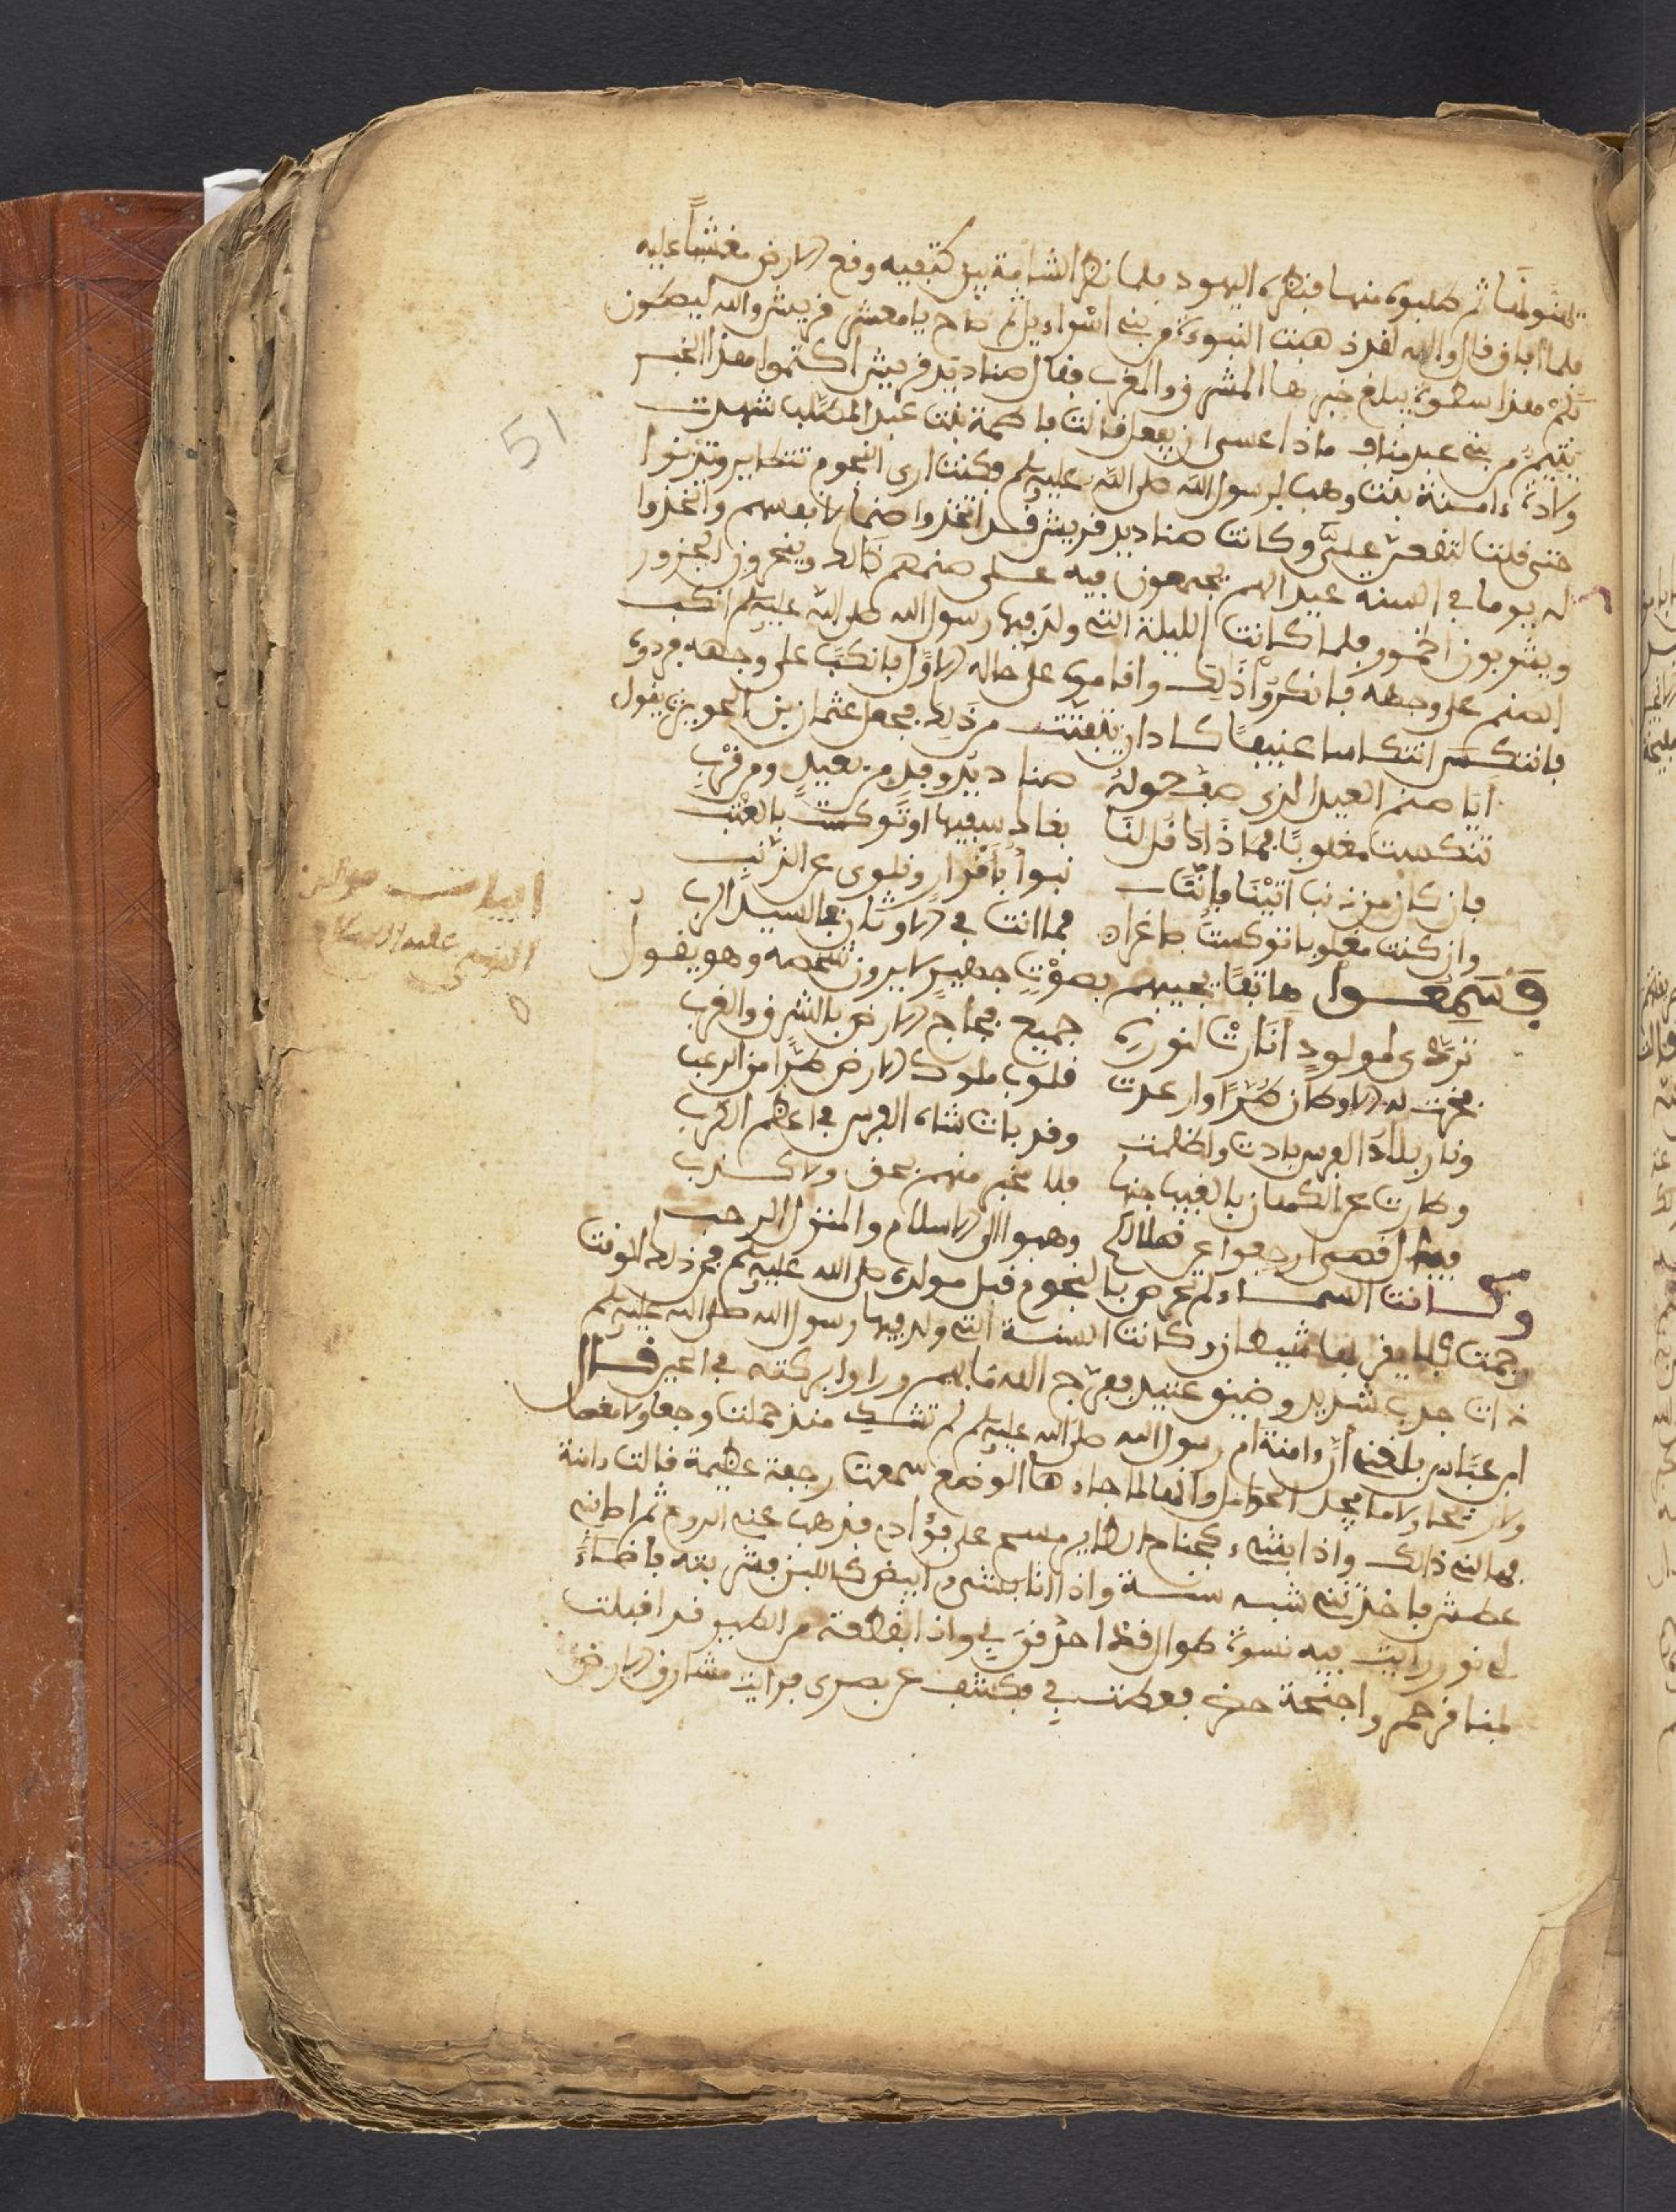 ثم طلبوه منها فنظره اليهود فلما نظر الشامة بين كتفيه وقع الارض مغشيا عليه
فلما أفاق قال والله لقد ذهبت النبوءة من بني اسراءيل ثم صاح يا معشر قريش والله ليصطون
بكم هذا سطوة يبلغ خبرها المشرق والمغرب فقال صناديد قريش اكتموا هذا الخبر
يتيم من بني عبد مناف ماذا عسى ان يفعل قالت فاطمة بنت عبد المطلب شهدت
ولادة ءامنة بنت وهب لرسول الله صلى الله عليه وسلم فكنت ارى النجوم تتطاير وتدنوا
حتى قلت لتقعن علي وكانت صناديد قريش قد اتخذوا صنما لانفسهم واتخذوا
له يوما في السنة عيدا لهم يجتمعون فيه على صنمهم ذالك وينحرون الجزور
ويشربون الخمور فلما كانت الليلة التي ولد فيها رسول الله صلى الله عليه وسلم انكب
الصنم على وجهه فانكروا ذلك واقاموه على حاله الاول فانكب على وجهه فردوه
فانتكس انتكاسا عنيفا كاد ان يتفتت من ذلك فجعل عثمان بن الحويرث يقول
أيا صنم العيد الذي صف حوله صناديد وفد من بعيد ومن قرب
تنكست مغلوبا فما ذاك قل لنا بغاك سفيه او تنوكست بالعتب
فان كان من ذنب اتينا فاننا نبوء باقرار ونلوى عن الذنب
وان كنت مغلوبا تنوكست صاغرا فما انت في الاوثان بالسيد الرب
فسمعوا هاتفا يجيبهم بصوت جهير لا يرون شخصه وهو يقول
تردى لمولود أنارت لنوره جميع فجاج الارض بالشرق والغرب
فخرت له الاوثان طرا وارعدت قلوب ملوك الارض طرا من الرعب
ونار بلاد الفرس بادت واظلمت وقد بات شاه الفرس في اعظم الكرب
وطارت عن الكهان بالغيب جنها فلا مخبر منهم بحق ولا كذب
فيال قصي ارجعوا عن ضلالكم وهبوا الى الاسلام والمنزل الرحب
وكانت السماء لم تحرس بالنجوم قبل مولده صلى الله عليه وسلم فمن ذلك الوقت
رجمت فلا يقربها شيطان وكانت السنة التي ولد فيها رسول الله صلى الله عليه وسلم
ذات جدب شديد وضيق عتيد ففرج الله ما بهم وراوا بركته في الحين قال
ابن عباس بلغني أن ءامنة ام رسول الله صلى الله عليه وسلم لم تشك منذ حملت وجعا ولا مغصا
ولا ريحا ولا ما يجد الحوامل وانها لما جاءها الوضع سمعت رجفة عظيمة قالت ءامنة
فهالني ذالك واذا بشيء كجناح الطاير مسح على فؤادي فذهب عني الروع ثم اصابني
عطش فاخذتني شبه سنة واذا انا بشيء ابيض كاللبن فشربته فاضاء
لي نور رايت فيه نسوة طوال قد احدقن بي واذا بقطعة من الطير قد اقبلت
لها مناقر حمر واجنحة خضر فكشف عن بصري فرايت مشارق الارض
ابيات
النبي عليه السلام
51